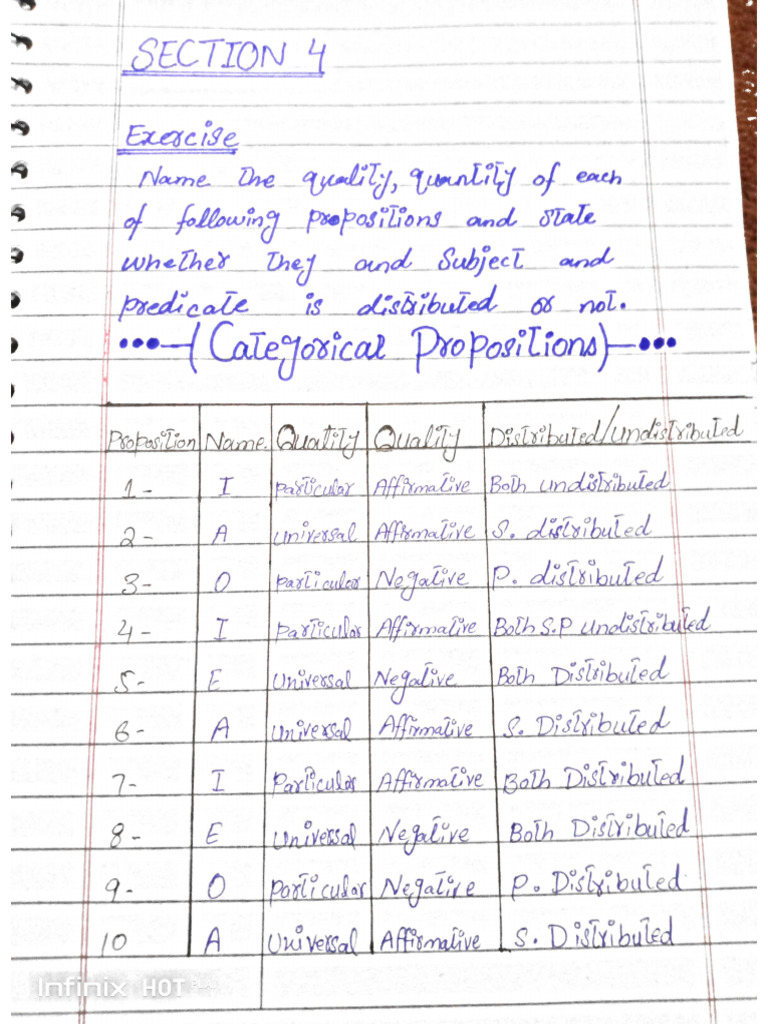 SECTION 4
Exercise
Name the quality, quantity of each
of following propositions and state
whether they and Subject and
predicate is distributed or not.
(Categorical Propositions)
Proposition Name. Quatity Quality Distributed/undistributed
1- I Particular Affirmative Both undistributed
2- A Universal Affirmative S. distributed
3- O Particular Negative P. distributed
4- I Particular Affirmative Both S.P undistributed
5- E Universal Negative Both Distributed
6- A Universal Affirmative S. Distributed
7- I Particular Affirmative Both Distributed
8- E Universal Negative Both Distributed
9- O Particular Negative P. Distributed
10 A Universal Affirmative S. Distributed
Infinix HOT